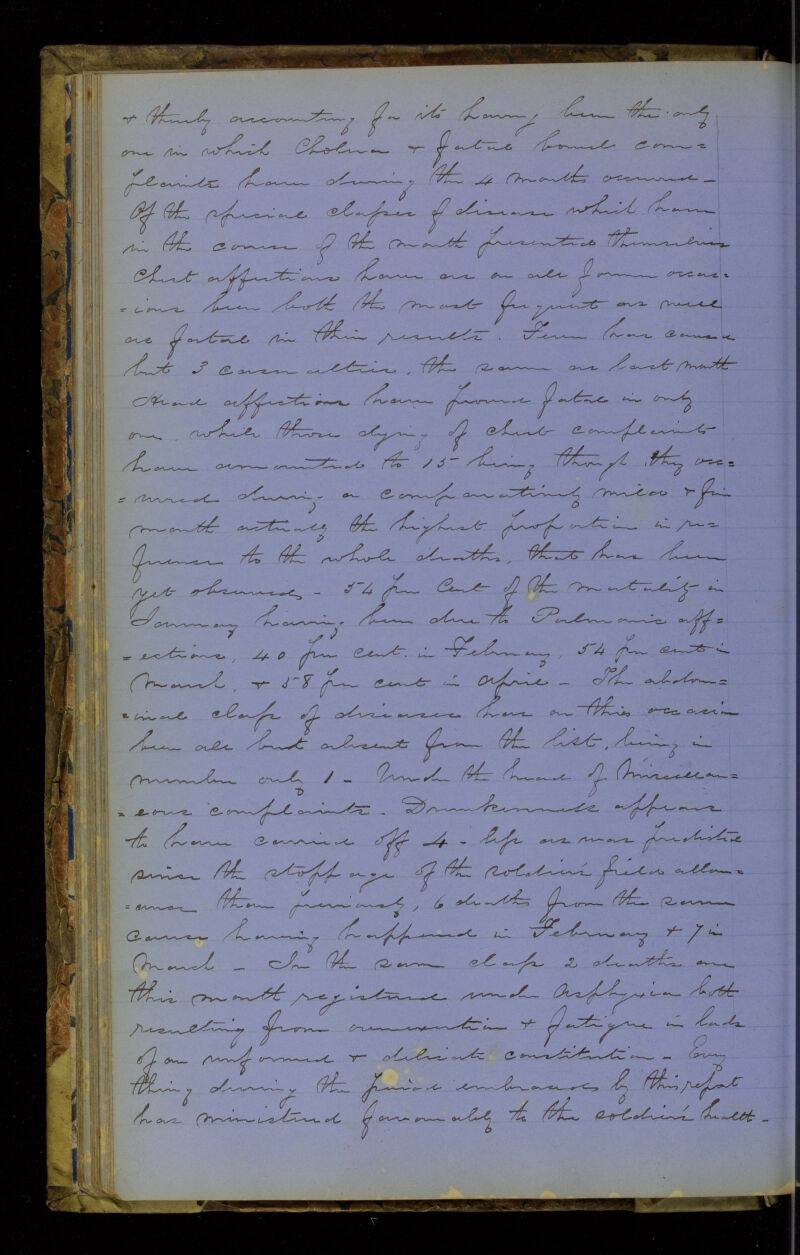 & thereby accounting for its having been the only
one in which Cholera & fatal bowel com=
plaints have during the 4 months occurred -
Of the special classes of disease which have
in the course of the month presented themselves
Chest affections have as on all former occas=
=ions been both the most frequent as well
as fatal in their results. Fever has caused
but 3 casualties, the same as last month
Head affections have proved fatal in only
one, while those dying of chest complaints
have amounted to 15 being though they occ=
=urred during a comparatively mild & fine
month actually the highest proportion in re=
ference to the whole deaths, that has been
yet observed - 54 per Cent of the mortality in
January having been due to Pulmonic aff=
=ections, 40 per cent in February, 54 per cent in
March, & 58 per cent in April - The abdom=
=inal class of diseases has on this occasion
been all but absent from the list, being in
number only 1 - Under the head of Miscellan=
=eous complaints. Drunkenness appears
to have carried off 4 - less as was predicted
since the stoppage of the soldier's field allow=
=ance than previously, 6 deaths from the same
cause having happened in February & 7 in
March - In the same class 2 deaths are
this month registered under Asphyxia both
resulting from overexertion & fatigue in lads
of an unformed & delicate constitution - Every
thing during the period embraced by this report
has ministered favourably to the soldier's health -